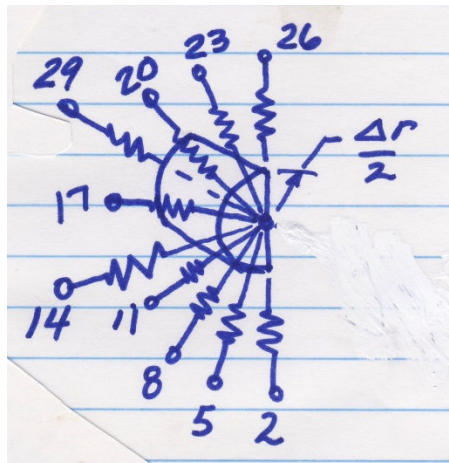 26
23
20
29
Δr
2
17
14
11
8
5
2